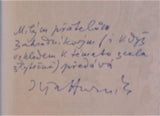 Milým přátelům
Zahradníkovým, i když
vzhledem k tématu zcela
zbytečně, předává
Ilja Hurník